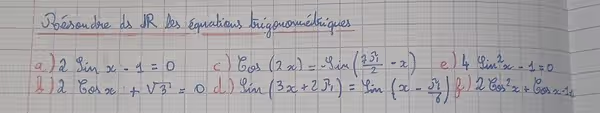 Résoudre ds IR les équations trigonométriques
a) 2 Sin x - 1 = 0 c) Cos (2x) = Sin (7π/2 - x) e) 4 Sin²x - 1 = 0
b) 2 Cos x + √3 = 0 d) Sin (3x + 2π) = Sin (x - π/6) f) 2 Cos²x + Cos x - 1